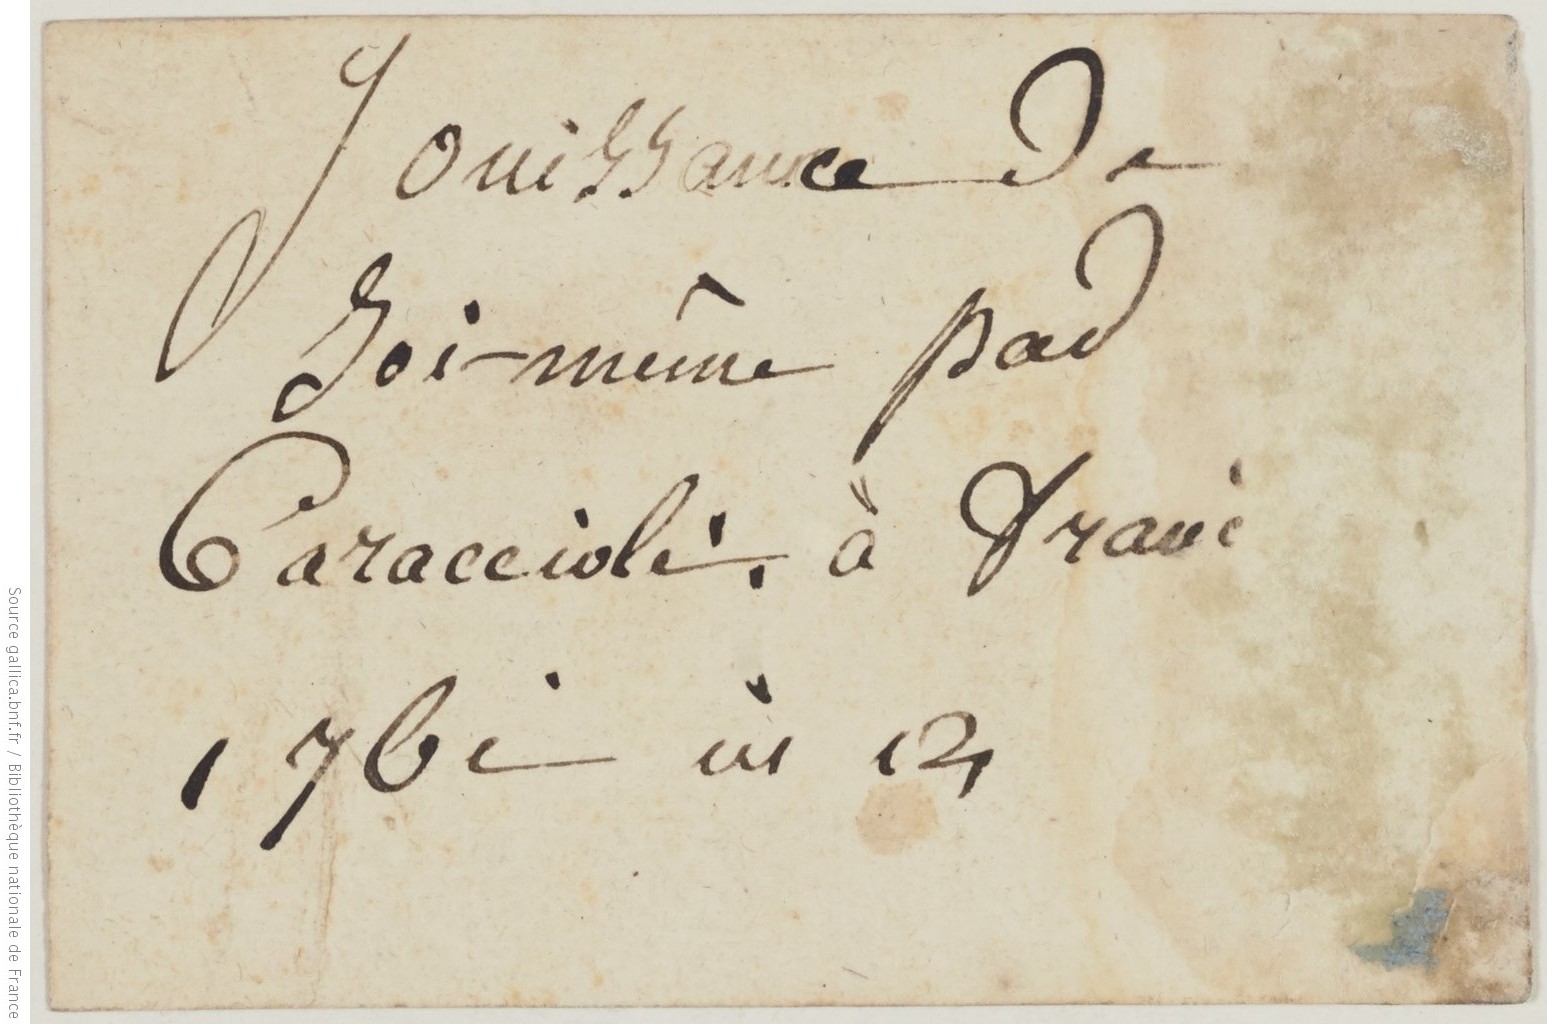 Jouissance de
Soi-même par
Caraccioli. à
176i in 12
Source gallica.bnf.fr / Bibliothèque nationale de France